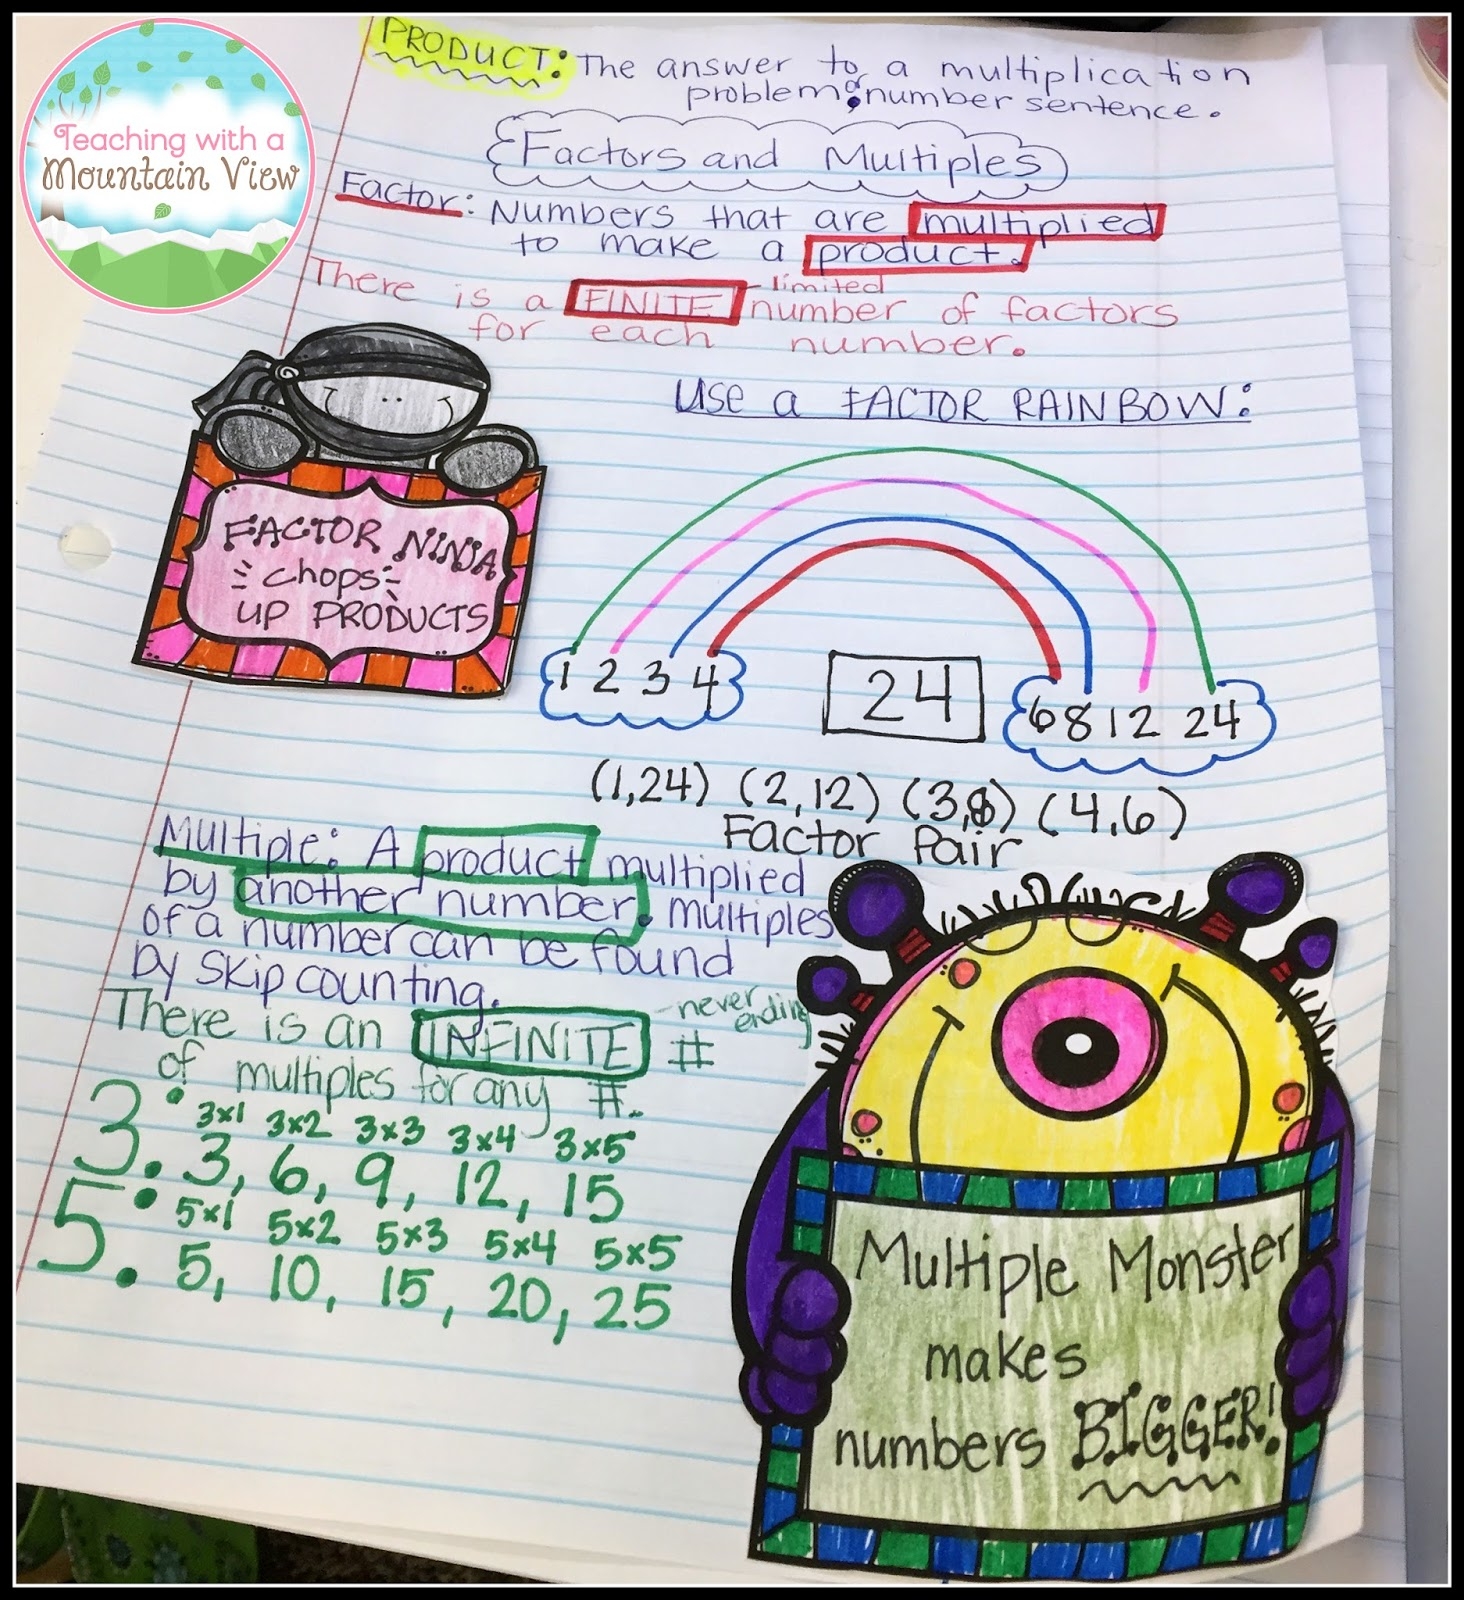 Teaching with a
Mountain View
PRODUCT: The answer to a multiplication
problem or number sentence.
Factors and Multiples
Factor: Numbers that are multiplied
to make a product.
There is a FINITE -limited number of factors
for each number.
Use a FACTOR RAINBOW:
FACTOR NINJA
chops
UP PRODUCTS
1 2 3 4 24 6 8 12 24
(1,24) (2,12) (3,8) (4,6)
Factor Pair
Multiple: A product multiplied
by another number. Multiples
of a number can be found
by skip counting.
There is an INFINITE -never ending #
of multiples for any #.
3: 3x1 3x2 3x3 3x4 3x5
3, 6, 9, 12, 15
5: 5x1 5x2 5x3 5x4 5x5
5, 10, 15, 20, 25
Multiple Monster
makes
numbers BIGGER!